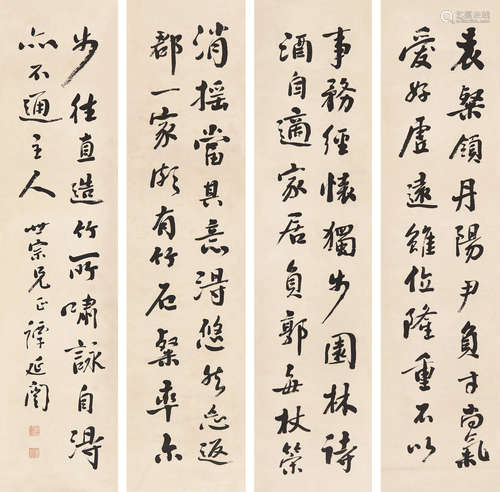 袁粲领丹陽尹負才尚氣
愛好虛遠雖位隆重不以
事務經懷獨步園林詩
酒自適家居負郭每杖策
消搖當其意得悠然忘返
郡一家頗有竹石粲率尔
步往直造竹所嘯詠自得
亦不通主人
世宗兄正 譚延闓